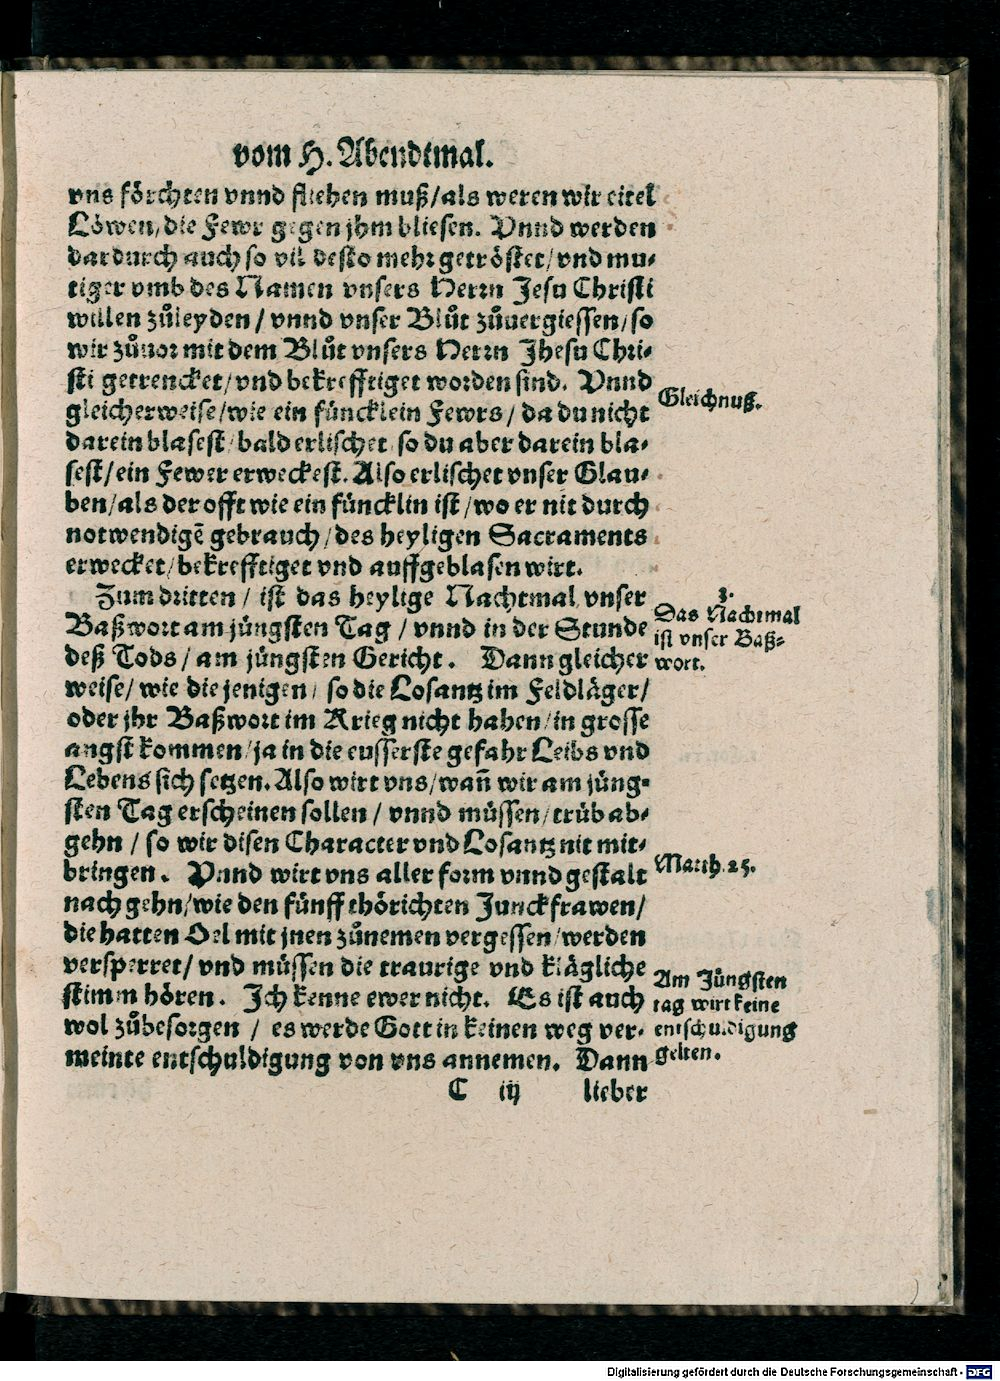 vom H. Abendtmal.
vns förchten vnnd fliehen muß/als weren wir eitel
Löwen/die Fewr gegen jhm bliesen. Vnnd werden
dardurch auch so vil desto mehr getröstet/vnd mu-
tiger vmb des Namen vnsers Herrn Jesu Christi
willen zůleyden / vnnd vnser Blůt zůuergiessen/so
wir zůuor mit dem Blůt vnsers Herrn Jhesu Chri-
sti getrencket/vnd bekrefftiget worden sind. Vnnd
gleicherweise/wie ein füncklein Fewrs / da du nicht
darein blasest/bald erlischet/so du aber darein bla-
sest/ein Fewer erweckest. Also erlischet vnser Glau-
ben/als der offt wie ein füncklin ist /wo er nit durch
notwendigē gebrauch /des heyligen Sacraments
erwecket/bekrefftiget vnd auffgeblasen wirt.
Gleichnuß.
Zum dritten / ist das heylige Nachtmal vnser
Baßwort am jüngsten Tag / vnnd in der Stunde
deß Tods / am jüngsten Gericht. Dann gleicher
weise/ wie die jenigen/ so die Losantz im Feldläger/
oder jhr Baßwort im Krieg nicht haben/in grosse
angst kommen/ja in die eusserste gefahr Leibs vnd
Lebens sich setzen. Also wirt vns/wañ wir am jüng-
sten Tag erscheinen sollen / vnnd müssen/trüb ab-
gehn / so wir disen Character vnd Losantz nit mit-
bringen. Vnnd wirt vns aller form vnnd gestalt
nach gehn/wie den fünff thörichten Junckfrawen/
die hatten Oel mit jnen zůnemen vergessen/werden
versperret/ vnd müssen die traurige vnd klägliche
stimm hören. Ich kenne ewer nicht. Es ist auch
wol zůbesorgen / es werde Gott in keinen weg ver-
meinte entschuldigung von vns annemen. Dann
3.
Das Nachtmal
ist vnser Baß-
wort.
Matth.25.
Am Jüngsten
tag wirt keine
entschuldigung
gelten.
C iij lieber
Digitalisierung gefördert durch die Deutsche Forschungsgemeinschaft - DFG